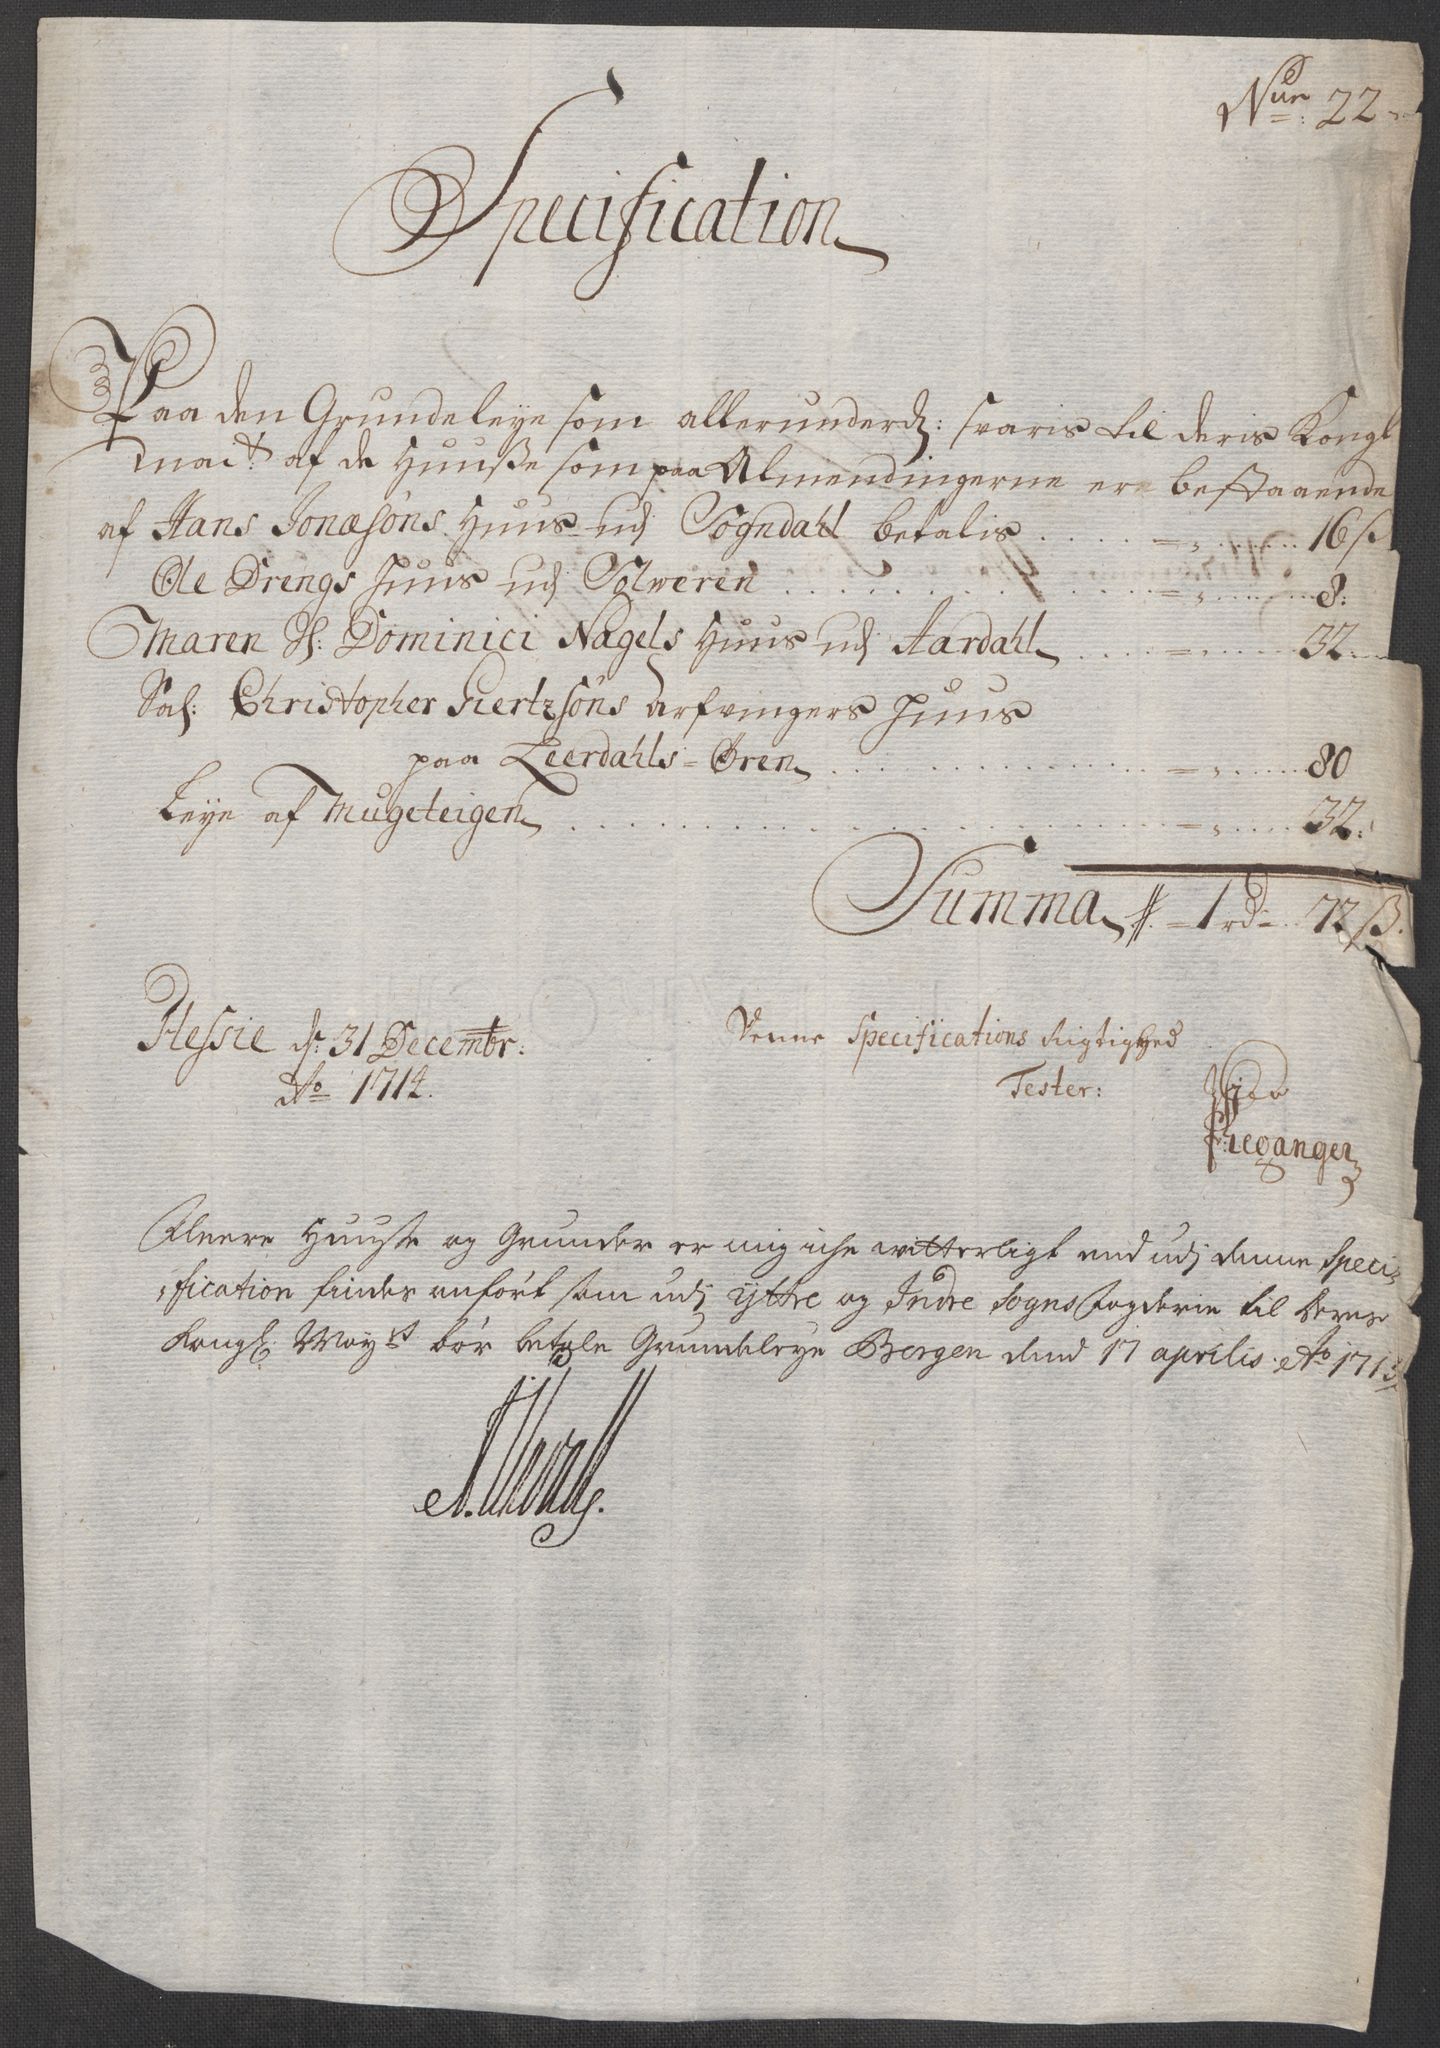 Num: 22
Specification
Paa den Grundeleye som allerunderd: svaris til deris Kongl
mait: af de Huuße som paa Almendingerne ere bestaaende
af Hans Jonæsöns Huus udj Sogndahl betalis . . . . = , . . . . . 16 ß
Ole Drengs Huus udj Solweren . . . . . . . . . . = , . . . . . 8:
Maren Sl: Dominici Nagels Huus udj Aardahl . . . . = , . . . . . 32
Sal: Christopher Giertzsöns Arfvingers Huus
paa Leerdahls=Ören . . . . . . . . . = , . . . . . 80
Leye af Mugeteigen . . . . . . . . . . . . . = , . . . . . 32:
Summa = 1 rd = 72 ß.
Flessie d: 31 Decembr:
Ao 1714.
Denne Specifications Rigtighed
Tester:
Freganger
Fleere Huuße og Grunder er mig iche witterligt end udj denne Speci-
fication findes anfört som udj yttre og Indre Sogns fogderie til Deres
Kongl: Mayst bör betale Grundeleye Bergen dend 17 aprilis Ao 1715